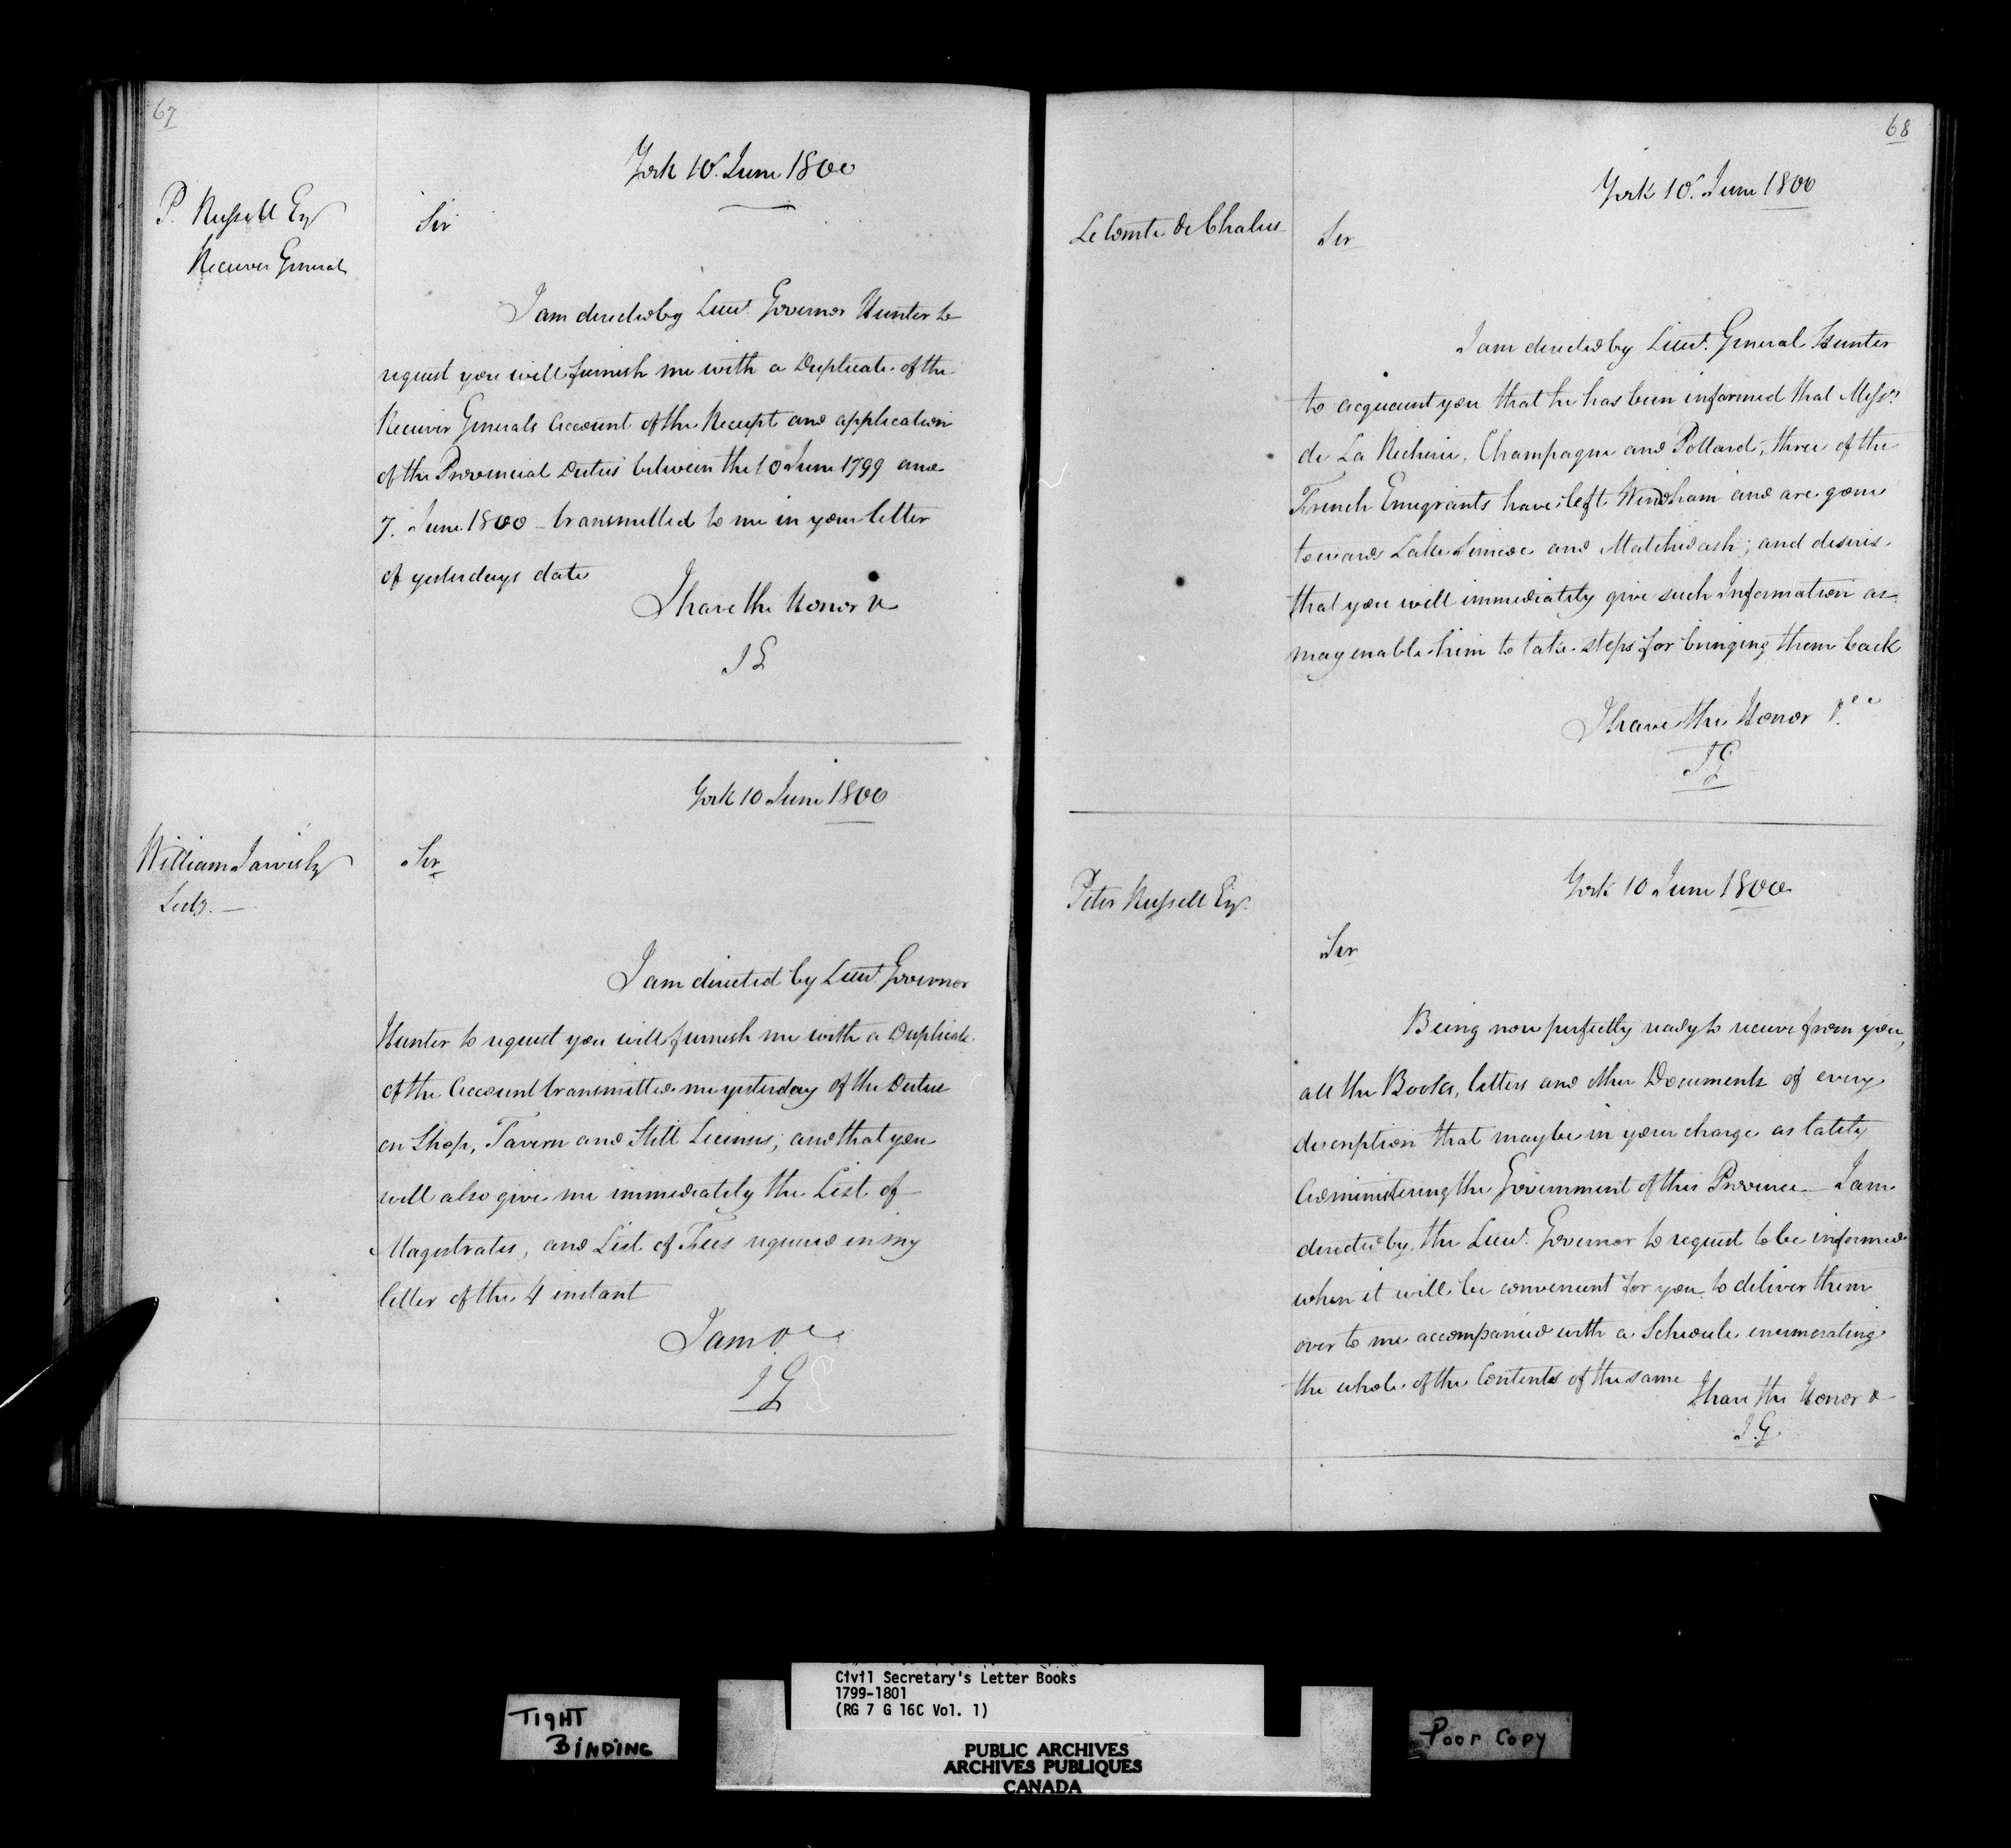 67
York 10. June 1800
P. Russell Esqr
Receiver General
Sir
I am directed by Lieut. Governor Hunter to
request you will furnish me with a Duplicate of the
Receiver Generals Account of the Receipt and application
of the Provincial Duties between the 10 June 1799 and
7. June 1800 – transmitted to me in your letter
of yesterdays date
I have the Honor &
J G
York 10 June 1800
William Jarvis Esqr
Secty. —
Sir
I am directed by Lieut Governor
Hunter to request you will furnish me with a Duplicate
of the Account transmitted me yesterday of the Duties
on Shop, Tavern and Still Licenses; and that you
will also give me immediately the List of
Magistrates, and List of Fees required in my
letter of the 4 instant
I am &c
J G
68
York 10. June 1800
Le Comte de Chalus
Sir
I am directed by Lieut. General Hunter
to acquaint you that he has been informed that Messrs.
de La Richerie, Champagne and Pollard, three of the
French Emigrants have left Windham and are gone
towards Lake Simcoe and Matchidash; and desires
that you will immediately give such Information as
may enable him to take steps for bringing them back
I have the Honor &cc
J G
York 10 June 1800
Peter Russell Esqr.
Sir
Being now perfectly ready to receive from you,
all the Books, letters and other Documents of every
description that may be in your charge as lately
Administering the Government of this Province — I am
directed by the Lieut. Governor to request to be informed
when it will be convenient for you to deliver them
over to me accompanied with a Schedule enumerating
the whole of the Contents of the same
I have the Honor &
J. G.
Civil Secretary's Letter Books
1799-1801
(RG 7 G 16C Vol. 1)
TIGHT
BINDING
Poor Copy
PUBLIC ARCHIVES
ARCHIVES PUBLIQUES
CANADA